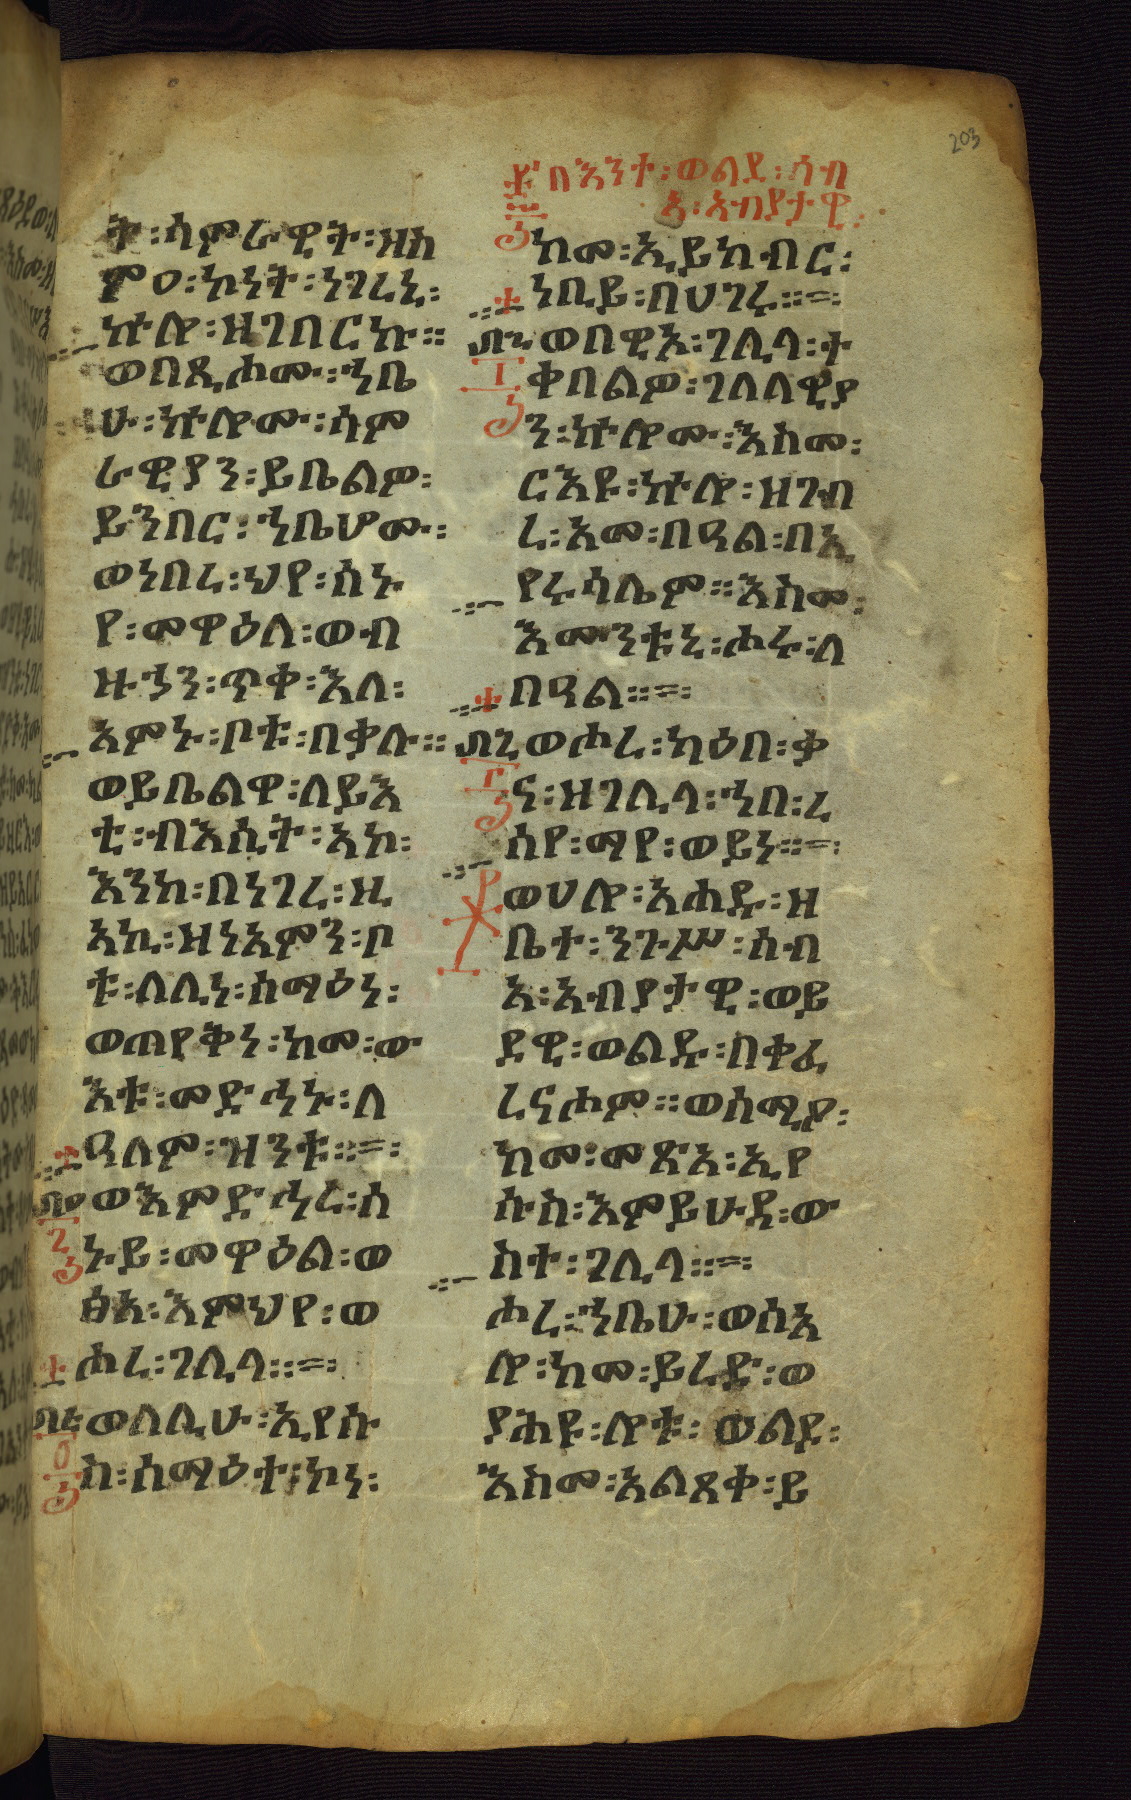 ት፡ሳምራዊት፡ዘስ
ምዐ፡ኮነት፡ነገረኒ፡
ኵሎ፡ዘገበርኩ።
ወበጺሖሙ፡ኀቤ
ሁ፡ኵሎሙ፡ሳም
ራዊያን፡ይቤልዎ፡
ይንበር፡ኀቤሆሙ፡
ወነበረ፡ህየ፡ሰኑ
የ፡መዋዕለ፡ወብ
ዙኃን፡ጥቀ፡እለ፡
አምኑ፡ቦቱ፡በቃሉ።
ወይቤልዋ፡ለይእ
ቲ፡ብእሲት፡አኮ፡
እንከ፡በነገረ፡ዚ
አኪ፡ዘነአምን፡ቦ
ቱ፡ለሊነ፡ሰማዕነ፡
ወጠየቅነ፡ከመ፡ው
እቱ፡መድኃኑ፡ለ
ዓለም፡ዝንቱ።=፡
ወእምድኃረ፡ሰ
ኑይ፡መዋዕል፡ወ
ፅአ፡እምህየ፡ወ
ሖረ፡ገሊላ።=፡
ወለሊሁ፡ኢየሱ
ስ፡ሰማዕተ፡ኮነ፡
በእንተ፡ወልደ፡ሳብ
አ፡አብያታዊ፡
ከመ፡ኢይከብር፡
ነቢይ፡በሀገሩ።=፡
ወበዊኦ፡ገሊላ፡ተ
ቀበልዎ፡ገለላዊያ
ን፡ኵሎሙ፡እስመ፡
ርእዩ፡ኵሎ፡ዘገብ
ረ፡አመ፡በዓል፡በኢ
የሩሳሌም።እስመ፡
እሙንቱኒ፡ሖሩ፡ለ
በዓል።=፡
ወሖረ፡ካዕበ፡ቃ
ና፡ዘገሊላ፡ኀበ፡ረ
ሰየ፡ማየ፡ወይነ።=፡
ወሀሎ፡አሐዱ፡ዘ
ቤተ፡ንጉሥ፡ሰብ
አ፡አብያታዊ፡ወይ
ደዊ፡ወልዱ፡በቀፈ
ረናሖም።ወሰሚዖ፡
ከመ፡መጽአ፡ኢየ
ሱስ፡እምይሁዳ፡ው
ስተ፡ገሊላ።=፡
ሖረ፡ኀቤሁ፡ወሰአ
ሎ፡ከመ፡ይረድ፡ወ
ያሕዩ፡ሎቱ፡ወልዶ፡
እስመ፡አልጸቀ፡ይ
203